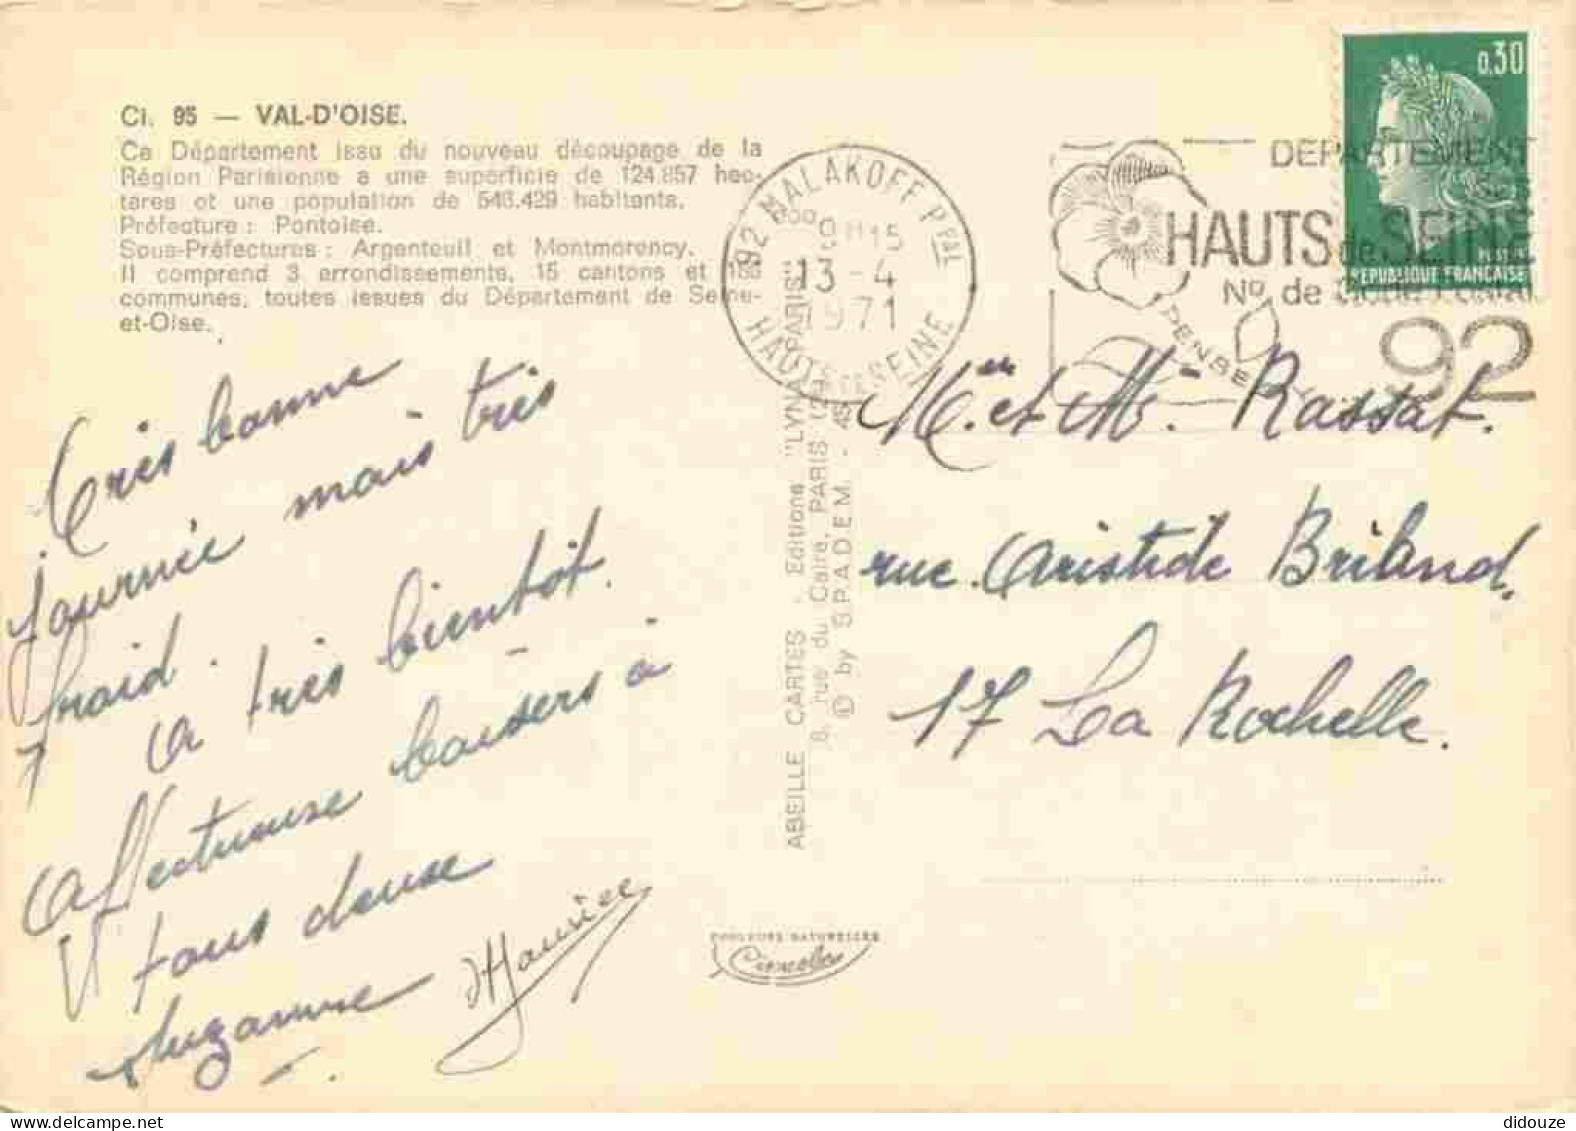 Ci. 95 — VAL-D'OISE.
Ce Département issu du nouveau découpage de la
Région Parisienne a une superficie de 124.857 hec-
tares et une population de 548.429 habitants.
Préfecture : Pontoise.
Sous-Préfectures : Argenteuil et Montmorency.
Il comprend 3 arrondissements, 15 cantons et
communes, toutes issues du Département de Seine-
et-Oise.
Très bonne
journée mais très
froid.
A très bientôt.
Affectueuse baisers à
tous deux
Suzanne Maurice
92 MALAKOFF Ppal
HAUTS SEINE
15
13-4
1971
DEPARTEMENT
HAUTS de SEINE
No. de Postal
92
PENSEZ
0,30
POSTES
REPUBLIQUE FRANÇAISE
Mr. et Me Rassat.
rue Aristide Briband,
17 La Rochelle.
ABEILLE CARTES - Editions "LYNA-PARIS"
8, rue du Caire, PARIS
© by S.P.A.D.E.M. -
COULEURS NATURELLES
Cimcolor
didouze